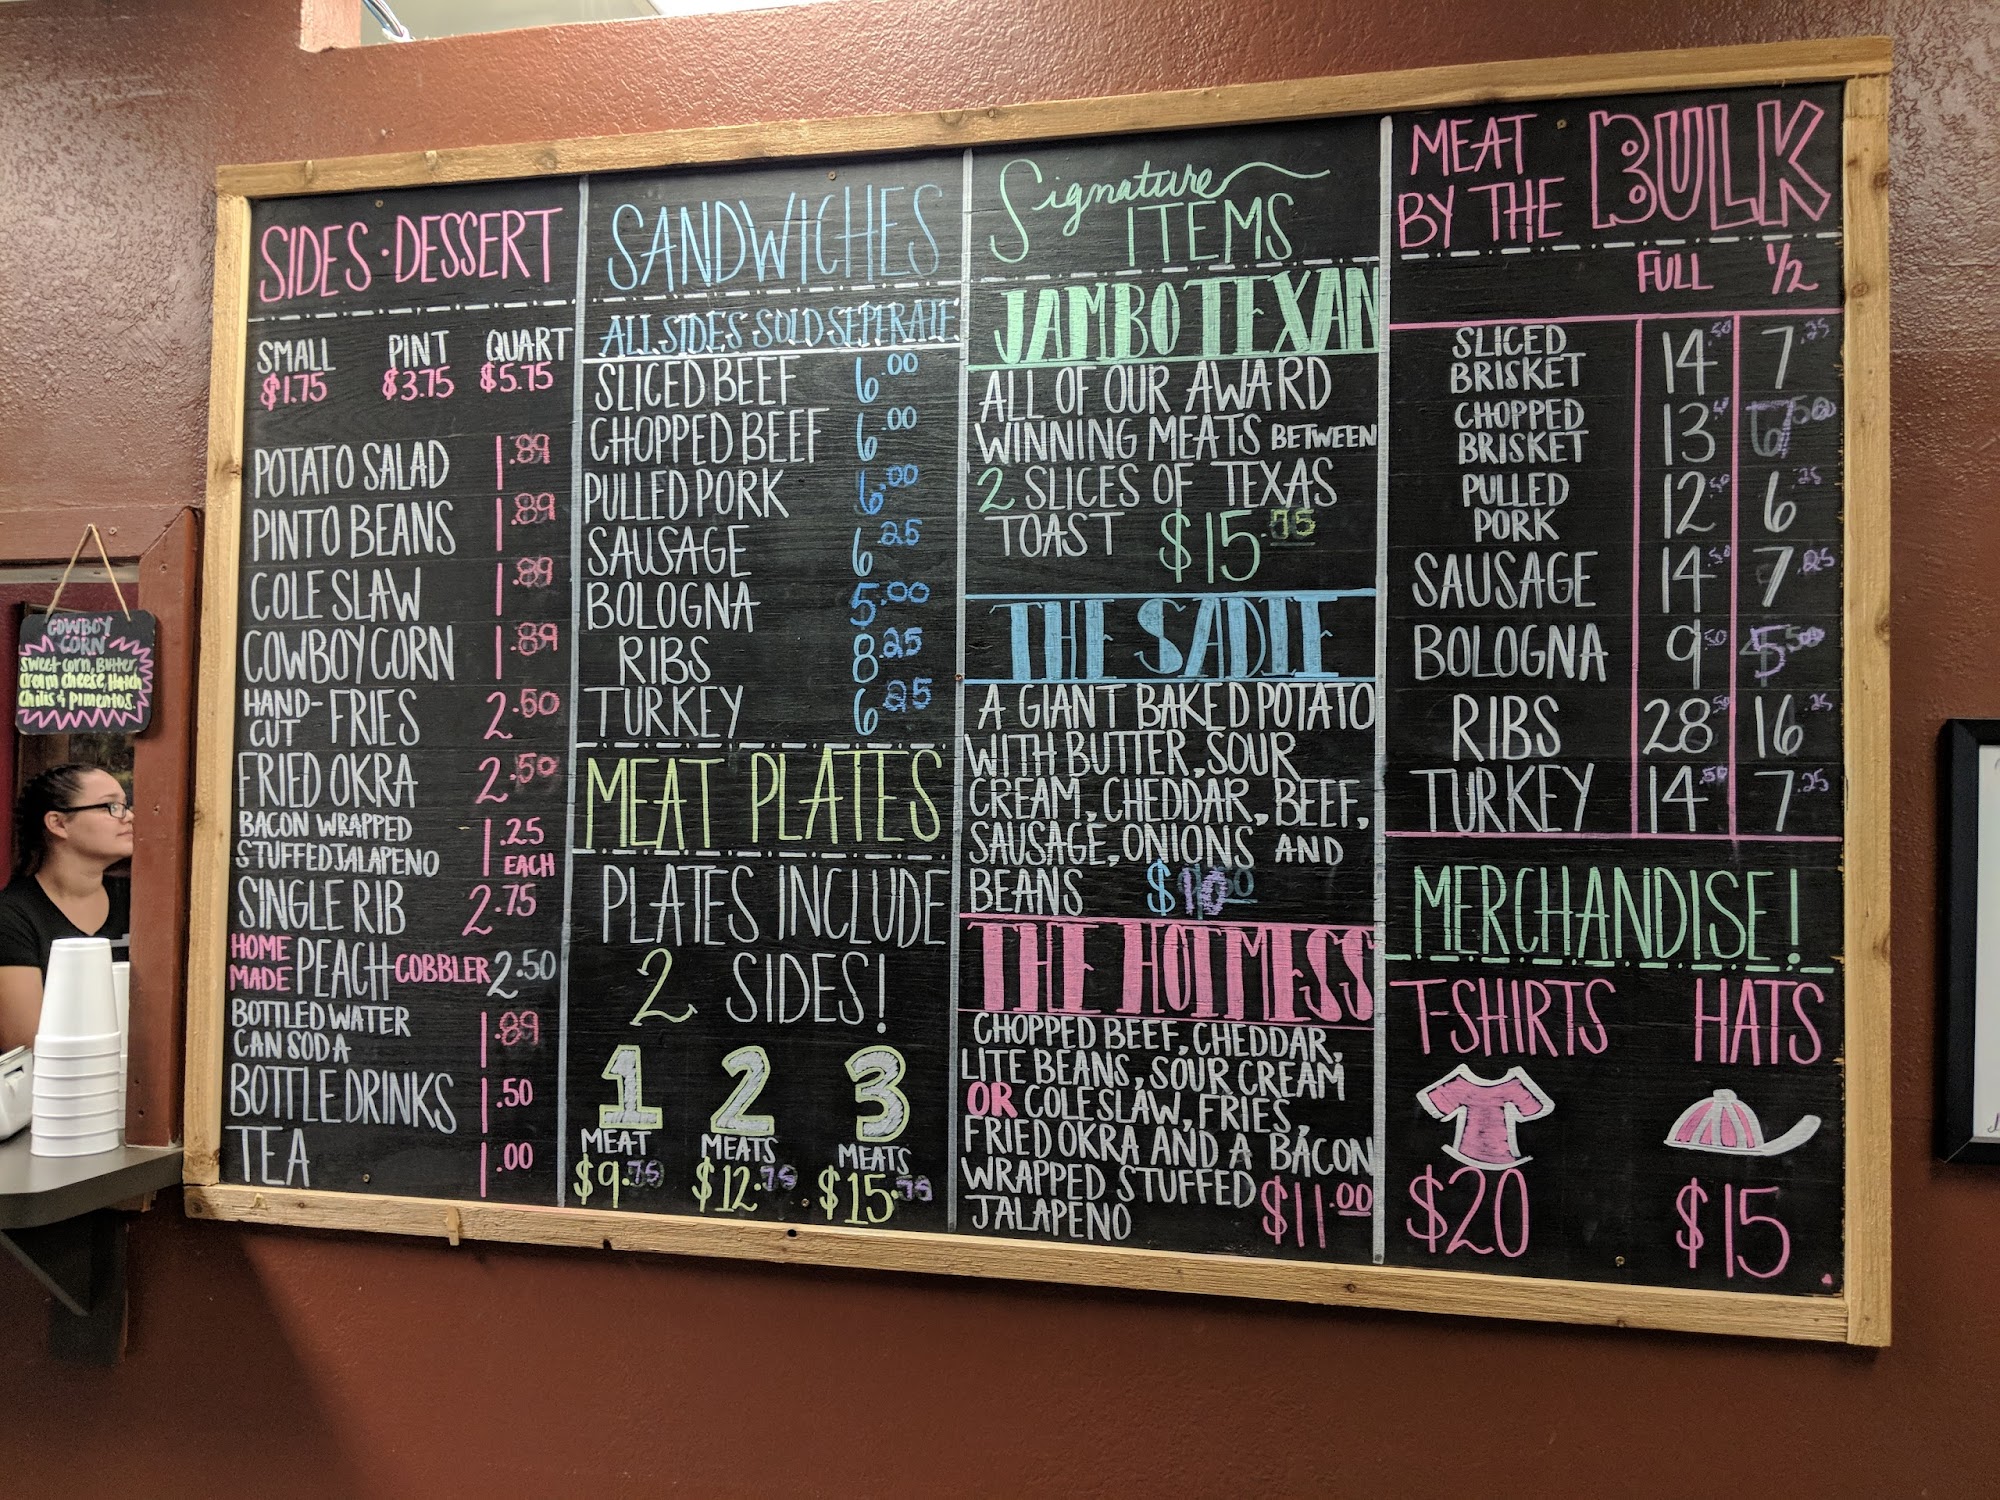 COWBOY
CORN
Sweet corn, Butter,
cream cheese, Hatch
chilis & pimentos.
SIDES · DESSERT
SMALL PINT QUART
$1.75 $3.75 $5.75
POTATO SALAD 1.89
PINTO BEANS 1.89
COLE SLAW 1.89
COWBOY CORN 1.89
HAND-CUT FRIES 2.50
FRIED OKRA 2.50
BACON WRAPPED
STUFFED JALAPENO 1.25 EACH
SINGLE RIB 2.75
HOME MADE PEACH COBBLER 2.50
BOTTLED WATER
CAN SODA 1.89
BOTTLE DRINKS 1.50
TEA 1.00
SANDWICHES
ALL SIDES SOLD SEPERATE
SLICED BEEF 6.00
CHOPPED BEEF 6.00
PULLED PORK 6.00
SAUSAGE 6.25
BOLOGNA 5.00
RIBS 8.25
TURKEY 6.25
MEAT PLATES
PLATES INCLUDE
2 SIDES!
1 2 3
MEAT MEATS MEATS
$9.75 $12.75 $15.75
Signature
ITEMS
JAMBO TEXAN
ALL OF OUR AWARD
WINNING MEATS BETWEEN
2 SLICES OF TEXAS
TOAST $15.75
THE SADIE
A GIANT BAKED POTATO
WITH BUTTER, SOUR
CREAM, CHEDDAR, BEEF,
SAUSAGE, ONIONS AND
BEANS $10
THE HOTMESS
CHOPPED BEEF, CHEDDAR,
LITE BEANS, SOUR CREAM
OR COLESLAW, FRIES,
FRIED OKRA AND A BACON
WRAPPED STUFFED
JALAPENO $11.00
MEAT
BY THE BULK
FULL 1/2
SLICED
BRISKET 14.50 7.25
CHOPPED
BRISKET 13
PULLED
PORK 12.50 6.25
SAUSAGE 14.50 7.25
BOLOGNA 9.50 5.50
RIBS 28.50 16.25
TURKEY 14.50 7.25
MERCHANDISE!
T-SHIRTS HATS
$20 $15